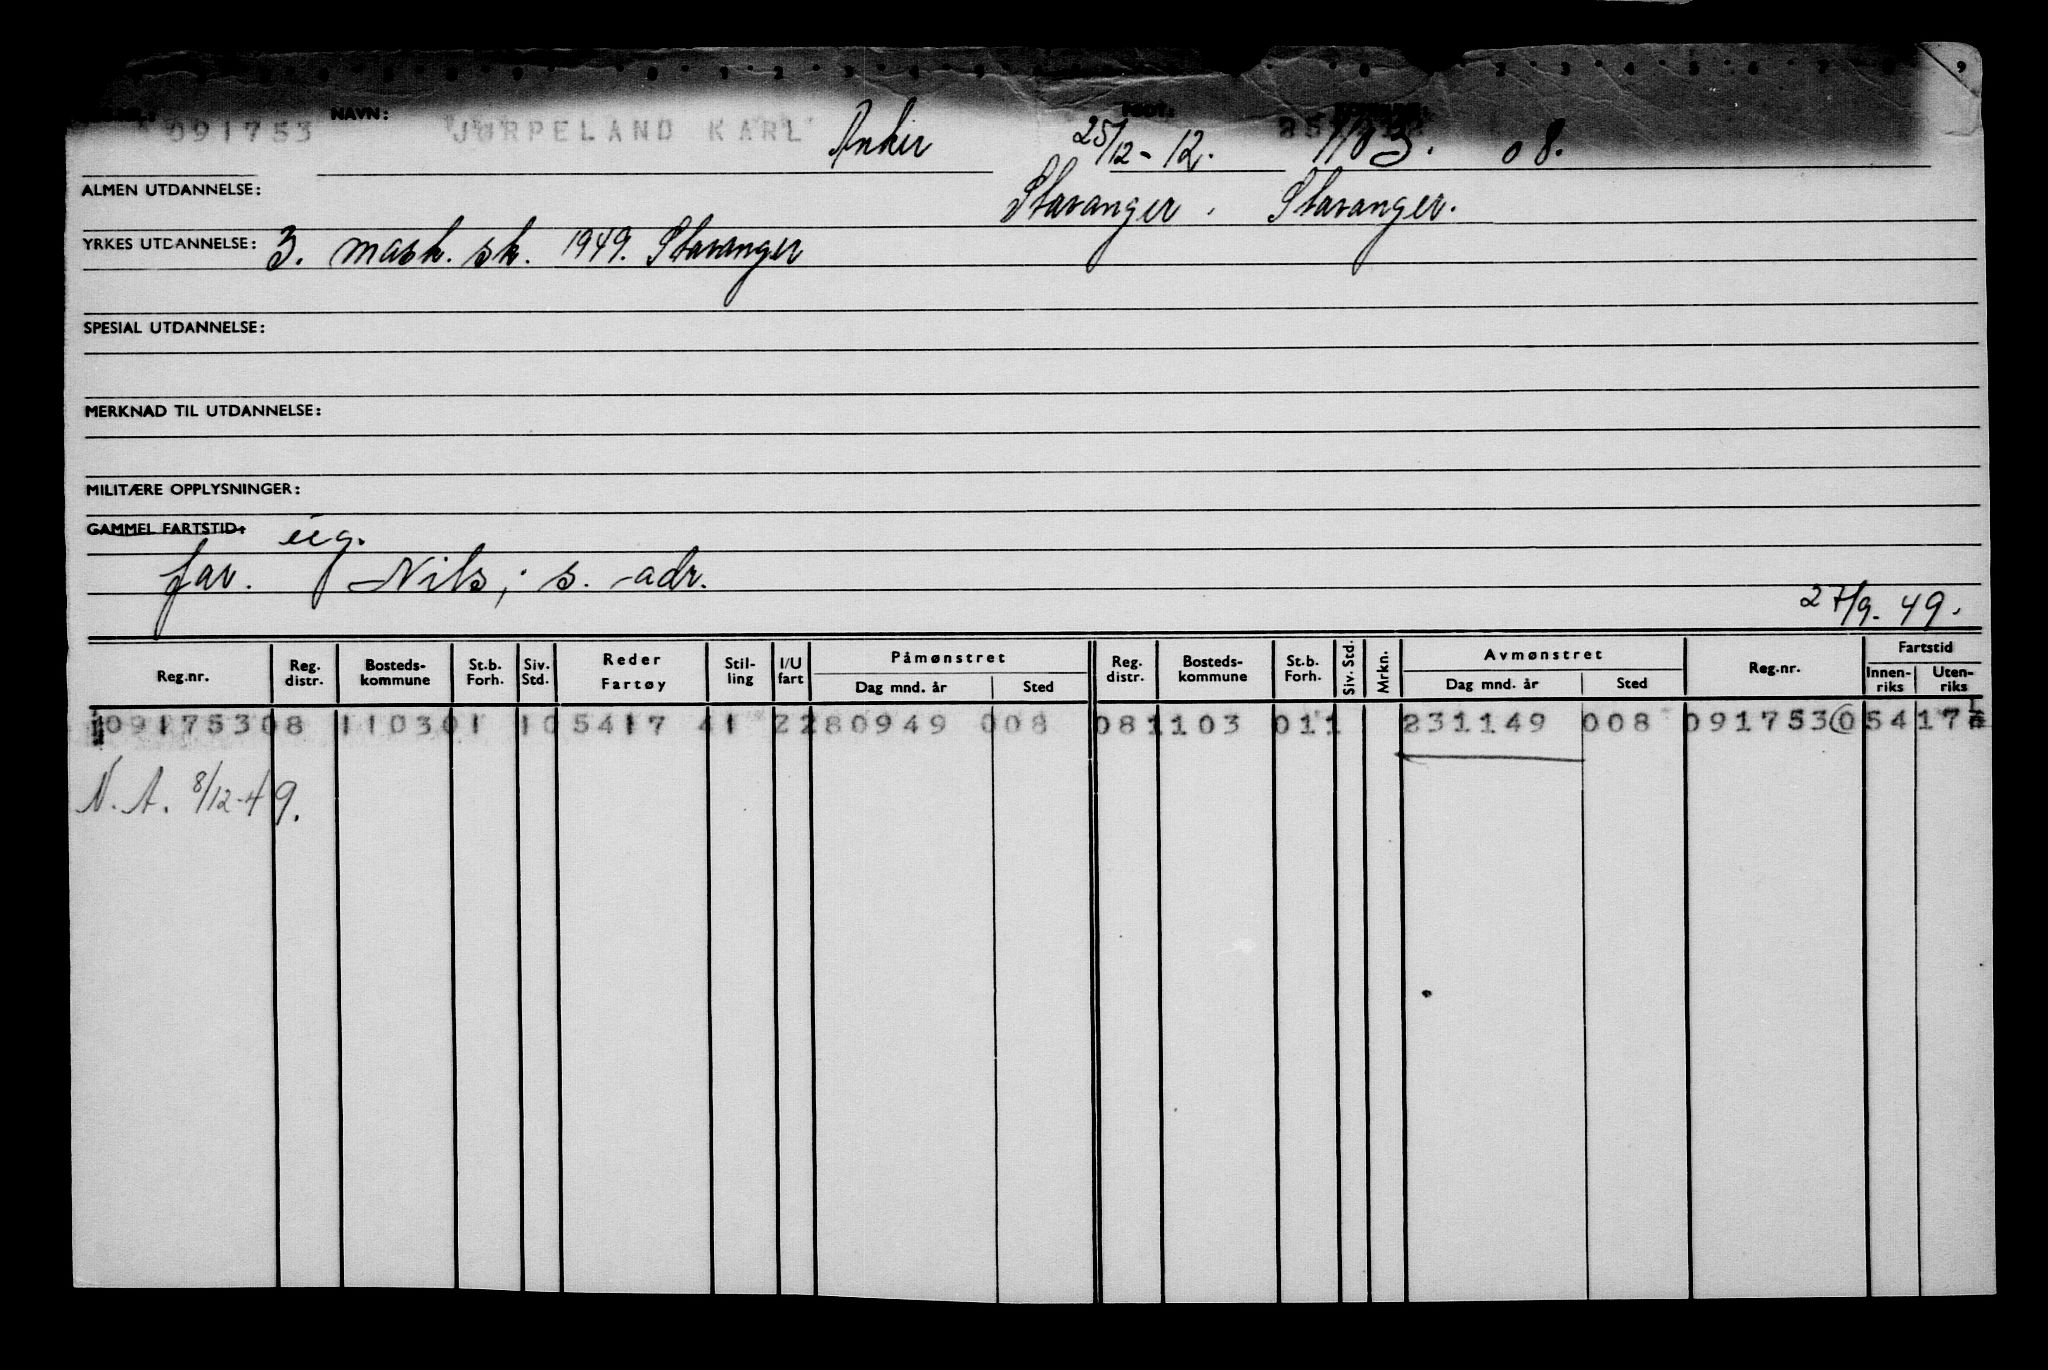 NAVN: FØDT:
091753 JØRPELAND KARL Anker 25/12-12. 1103. 08.
ALMEN UTDANNELSE: Stavanger. Stavanger.
YRKES UTDANNELSE: 3. mask. sk. 1949. Stavanger
SPESIAL UTDANNELSE:
MERKNAD TIL UTDANNELSE:
MILITÆRE OPPLYSNINGER:
GAMMEL FARTSTID: ug.
far. Nils, s. adr.
27/9. 49.
Reg.nr. Reg. distr. Bosteds-kommune St.b. Forh. Siv. Std. Reder Fartøy Stil-ling I/U fart Påmønstret Dag mnd. år Sted Reg. distr. Bosteds-kommune St.b. Forh. Siv. Std. Mrkn. Avmønstret Dag mnd. år Sted Reg.nr. Fartstid Innen-riks Uten-riks
09175308 110301 10 5417 41 2280949 008 081103 011 231149 008 091753 0 54 17
N.A. 8/12-49.